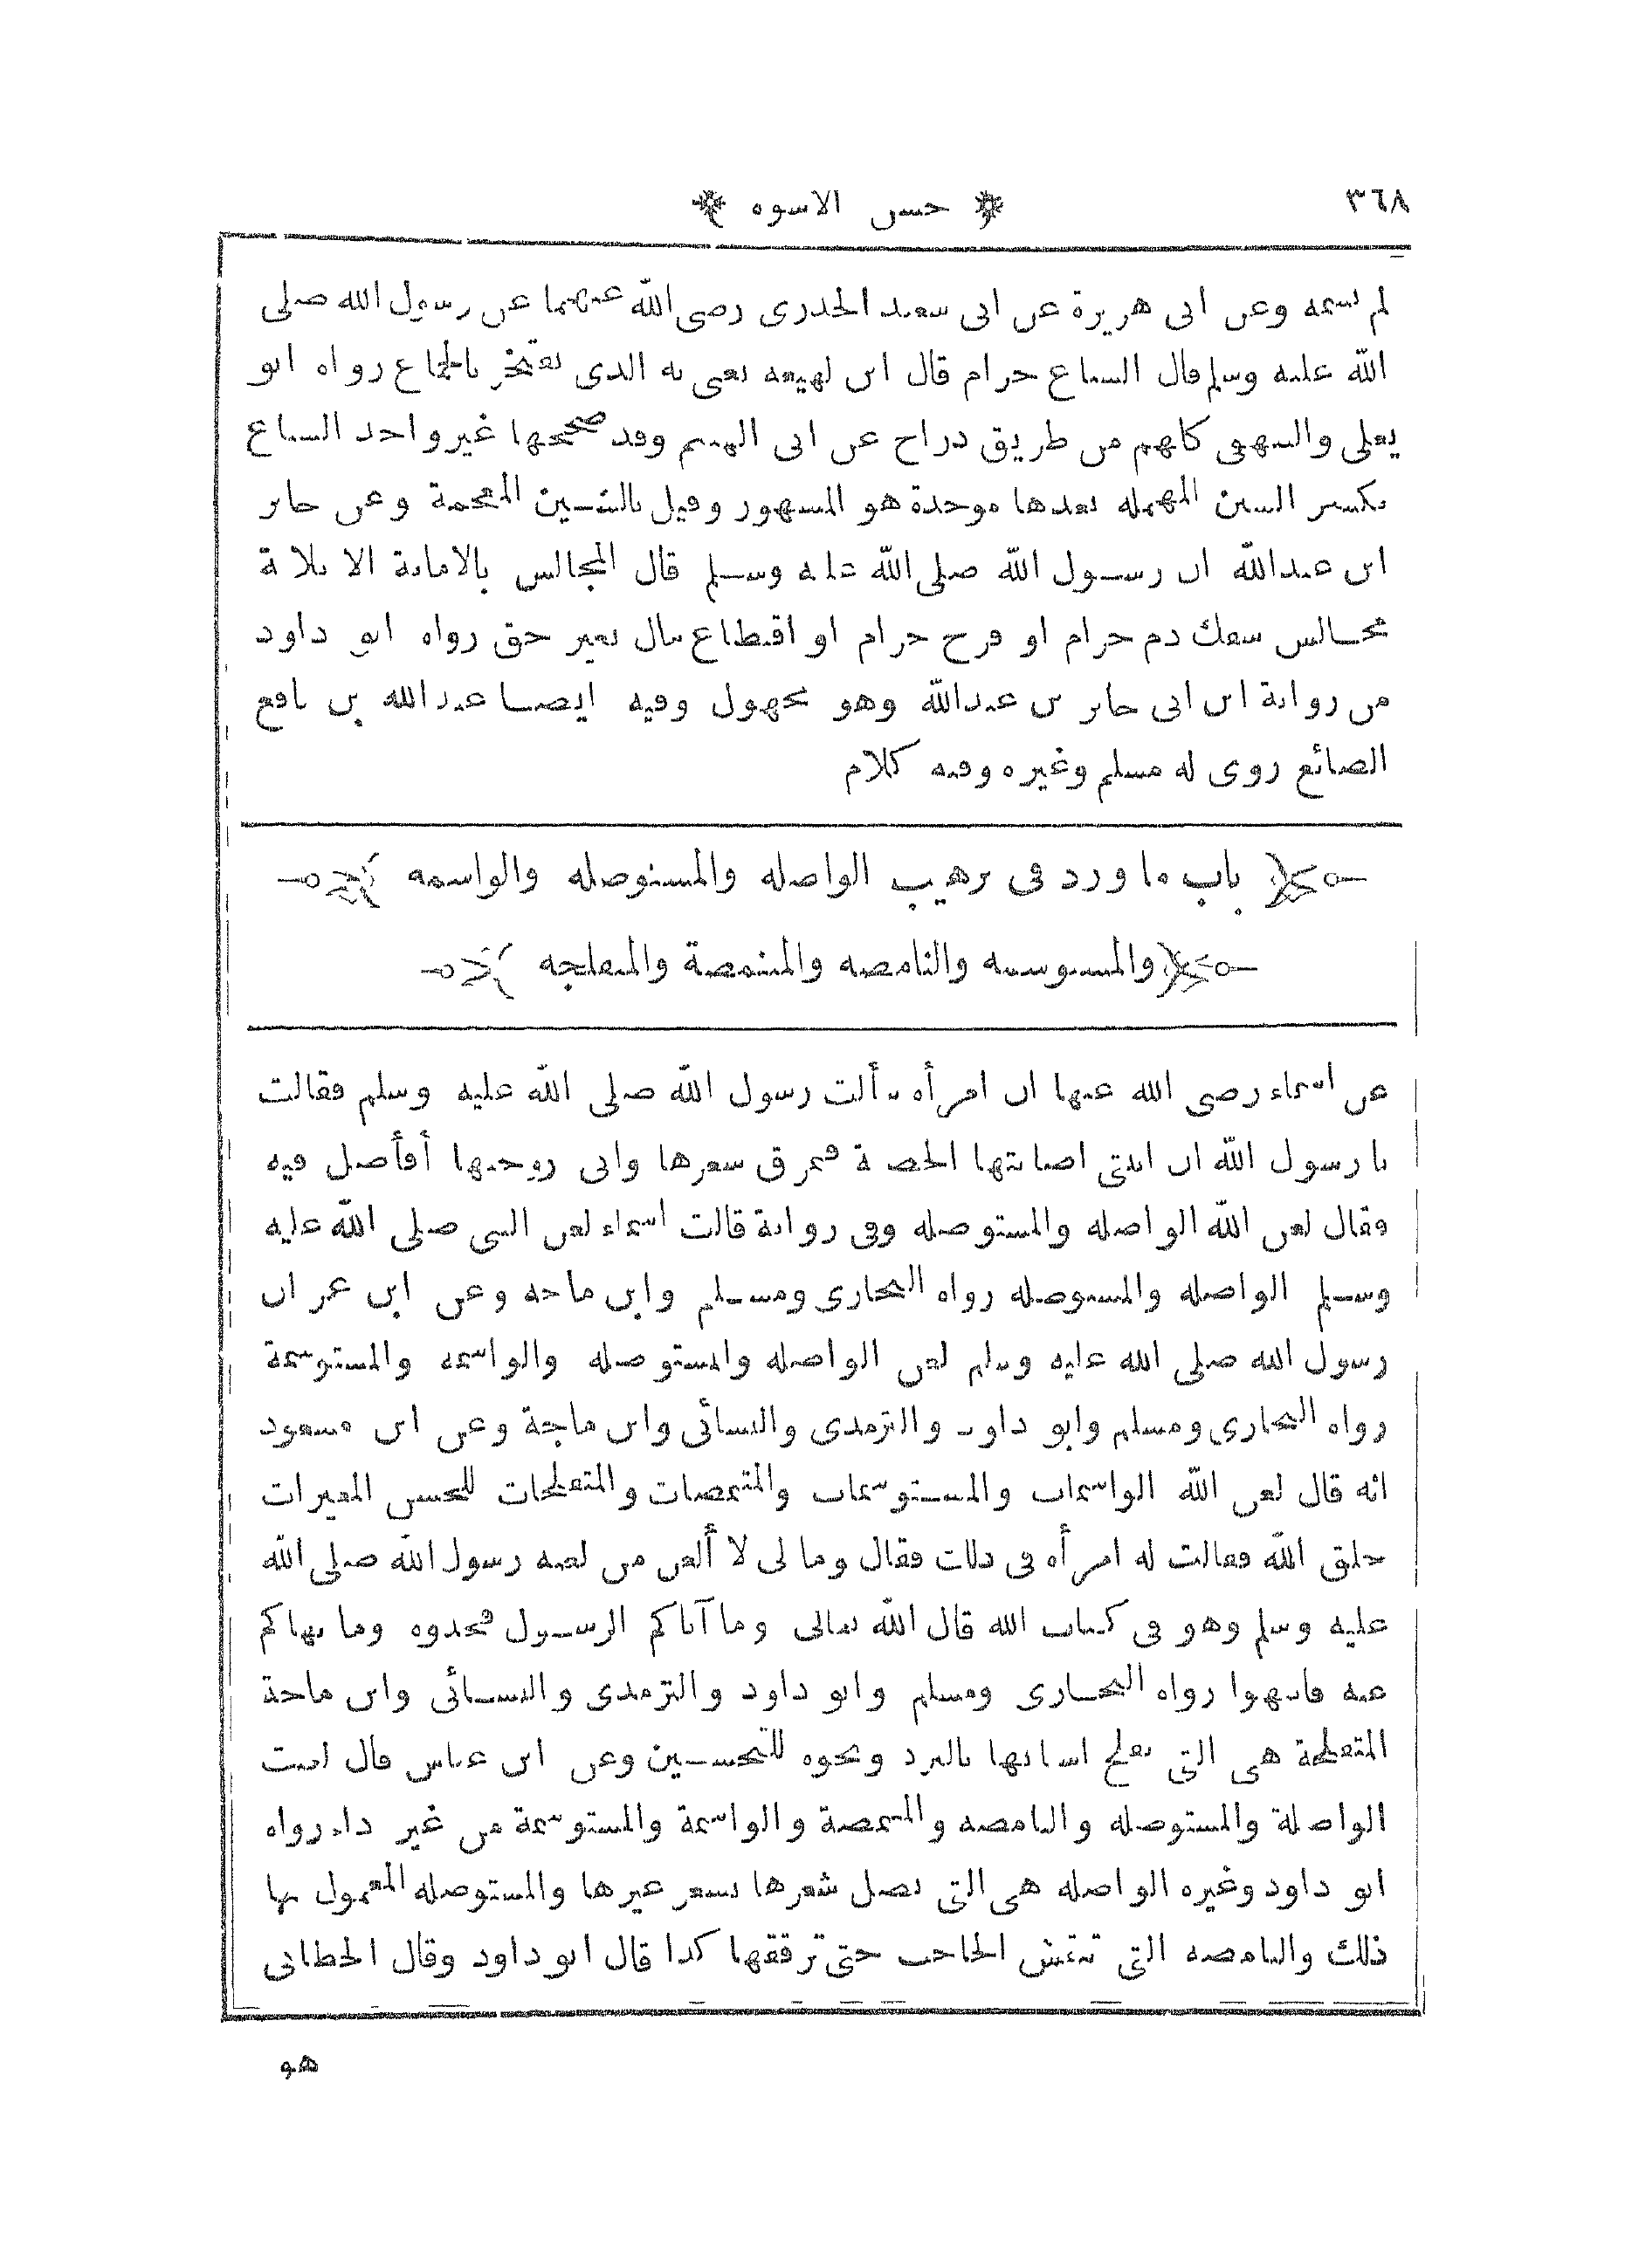 ٣٦٨ حسن الاسوة
لم يسمه وعن ابى هريرة عن ابى سعيد الخدرى رضى الله عنهما عن رسول الله صلى
الله عليه وسلم قال السباع حرام قال ابن لهيعة يعنى به الذى يفتخر بالجماع رواه ابو
يعلى والبيهقى كلهم من طريق دراج عن ابى الهيثم وقد صححها غير واحد السباع
بكسر السين المهملة بعدها موحدة هو المشهور وقيل بالشين المعجمة وعن جابر
ابن عبدالله ان رسول الله صلى الله عليه وسلم قال المجالس بالامانة الا ثلاثة
مجالس سفك دم حرام او فرج حرام او اقتطاع مال بغير حق رواه ابو داود
من رواية ابن اخى جابر بن عبدالله وهو مجهول وفيه ايضا عبدالله بن نافع
الصائغ روى له مسلم وغيره وفيه كلام
باب ما ورد فى ترهيب الواصلة والمستوصلة والواشمة
والمستوشمة والنامصة والمتنمصة والمتفلجة
عن اسماء رضى الله عنها ان امرأة سألت رسول الله صلى الله عليه وسلم فقالت
يا رسول الله ان ابنتى اصابتها الحصبة فتمرق شعرها وانى زوجتها أفأصل فيه
فقال لعن الله الواصلة والمستوصلة وفى رواية قالت اسماء لعن النبى صلى الله عليه
وسلم الواصلة والمستوصلة رواه البخارى ومسلم وابن ماجه وعن ابن عمر ان
رسول الله صلى الله عليه وسلم لعن الواصلة والمستوصلة والواشمة والمستوشمة
رواه البخارى ومسلم وابو داود والترمذى والنسائى وابن ماجة وعن ابن مسعود
انه قال لعن الله الواشمات والمستوشمات والمتنمصات والمتفلجات للحسن المغيرات
خلق الله فقالت له امرأة فى ذلك فقال وما لى لا ألعن من لعنه رسول الله صلى الله
عليه وسلم وهو فى كتاب الله قال الله تعالى وما آتاكم الرسول فخذوه وما نهاكم
عنه فانتهوا رواه البخارى ومسلم وابو داود والترمذى والنسائى وابن ماجة
المتفلجة هى التى تفلج اسنانها بالمبرد ونحوه للتحسين وعن ابن عباس قال لعنت
الواصلة والمستوصلة والنامصة والمتنمصة والواشمة والمستوشمة من غير داء رواه
ابو داود وغيره الواصلة هى التى تصل شعرها بشعر غيرها والمستوصلة المعمول بها
ذلك والنامصة التى تنقش الحاجب حتى ترققها كذا قال ابو داود وقال الخطابى
هو